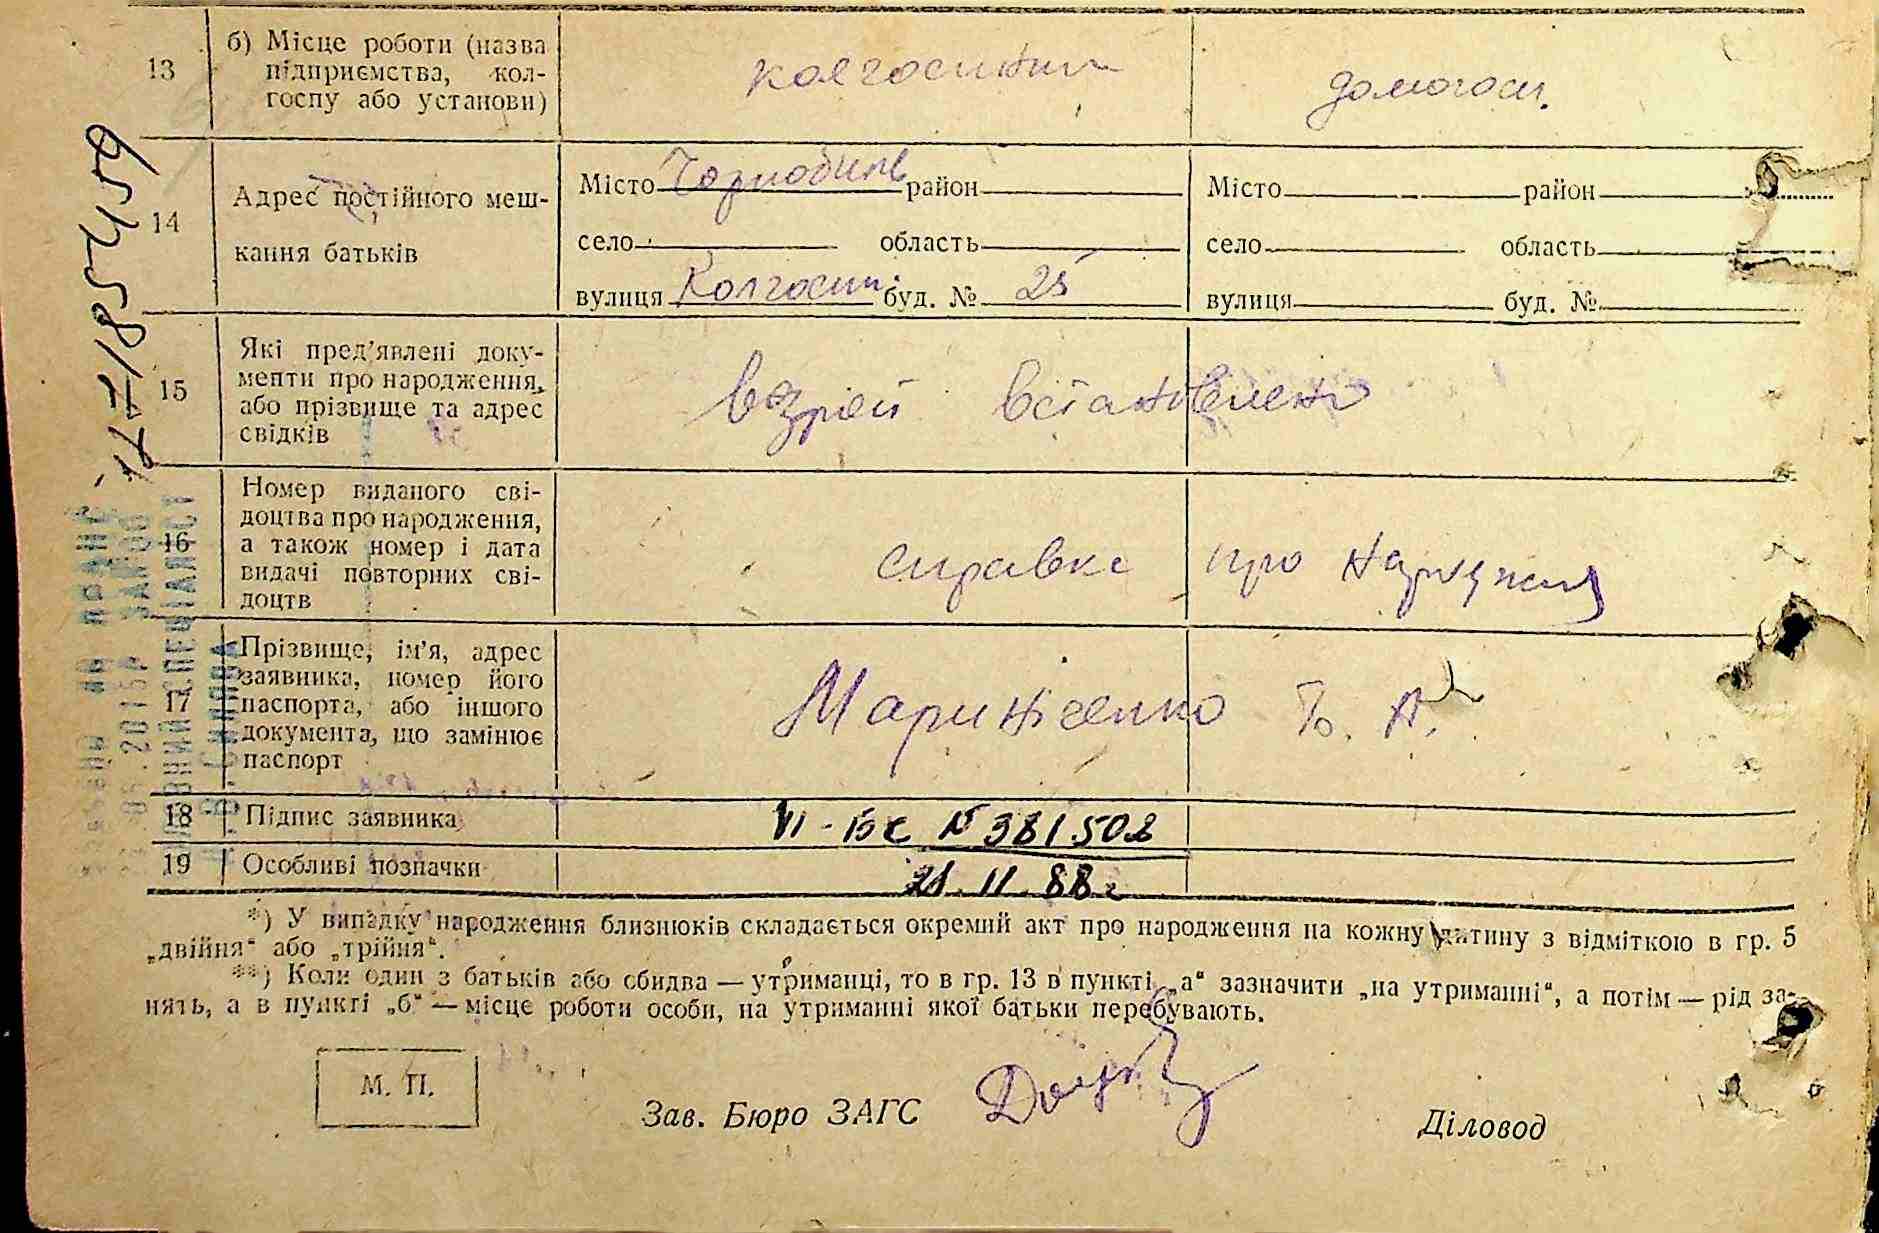 13
б) Місце роботи (назва
підприємства, кол-
госпу або установи)
колгоспник
домогосп.
14
Адрес постійного меш-
кання батьків
Місто Чорнобиль район
село область
вулиця Колгоспн. буд. № 25
Місто район
село область
вулиця буд. №
15
Які пред'явлені доку-
менти про народження,
або прізвище та адрес
свідків
возрост встановлено
16
Номер виданого сві-
доцтва про народження,
а також номер і дата
видачі повторних сві-
доцтв
справка про
17
Прізвище, ім'я, адрес
заявника, номер його
паспорта, або іншого
документа, що замінює
паспорт
А.
18
Підпис заявника
VI-БК № 381502
19
Особливі позначки
21.11.88г
*) У випадку народження близнюків складається окремий акт про народження на кожну дитину з відміткою в гр. 5
„двійня“ або „трійня“.
**) Коли один з батьків або обидва — утриманці, то в гр. 13 в пункті „а“ зазначити „на утриманні“, а потім — рід за-
нять, а в пункті „б“ — місце роботи особи, на утриманні якої батьки перебувають.
М. П.
Зав. Бюро ЗАГС
Діловод